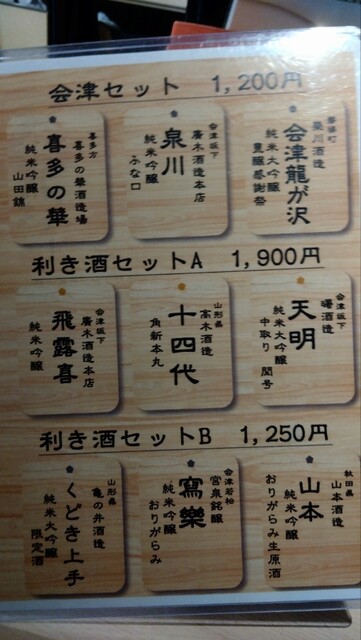 会津セット 1,200円
磐梯町
榮川酒造
会津龍が沢
純米大吟醸
豊醸感謝祭
会津坂下
廣木酒造本店
泉川
純米吟醸
ふな口
喜多方
喜多の華酒造場
喜多の華
純米吟醸
山田錦
利き酒セットA 1,900円
会津坂下
曙酒造
天明
純米大吟醸
中取り 閏号
山形県
高木酒造
十四代
角新本丸
会津坂下
廣木酒造本店
飛露喜
純米吟醸
利き酒セットB 1,250円
秋田県
山本酒造
山本
純米吟醸
おりがらみ生原酒
会津若松
宮泉銘醸
寫樂
純米吟醸
おりがらみ
山形県
亀の井酒造
くどき上手
純米大吟醸
限定酒